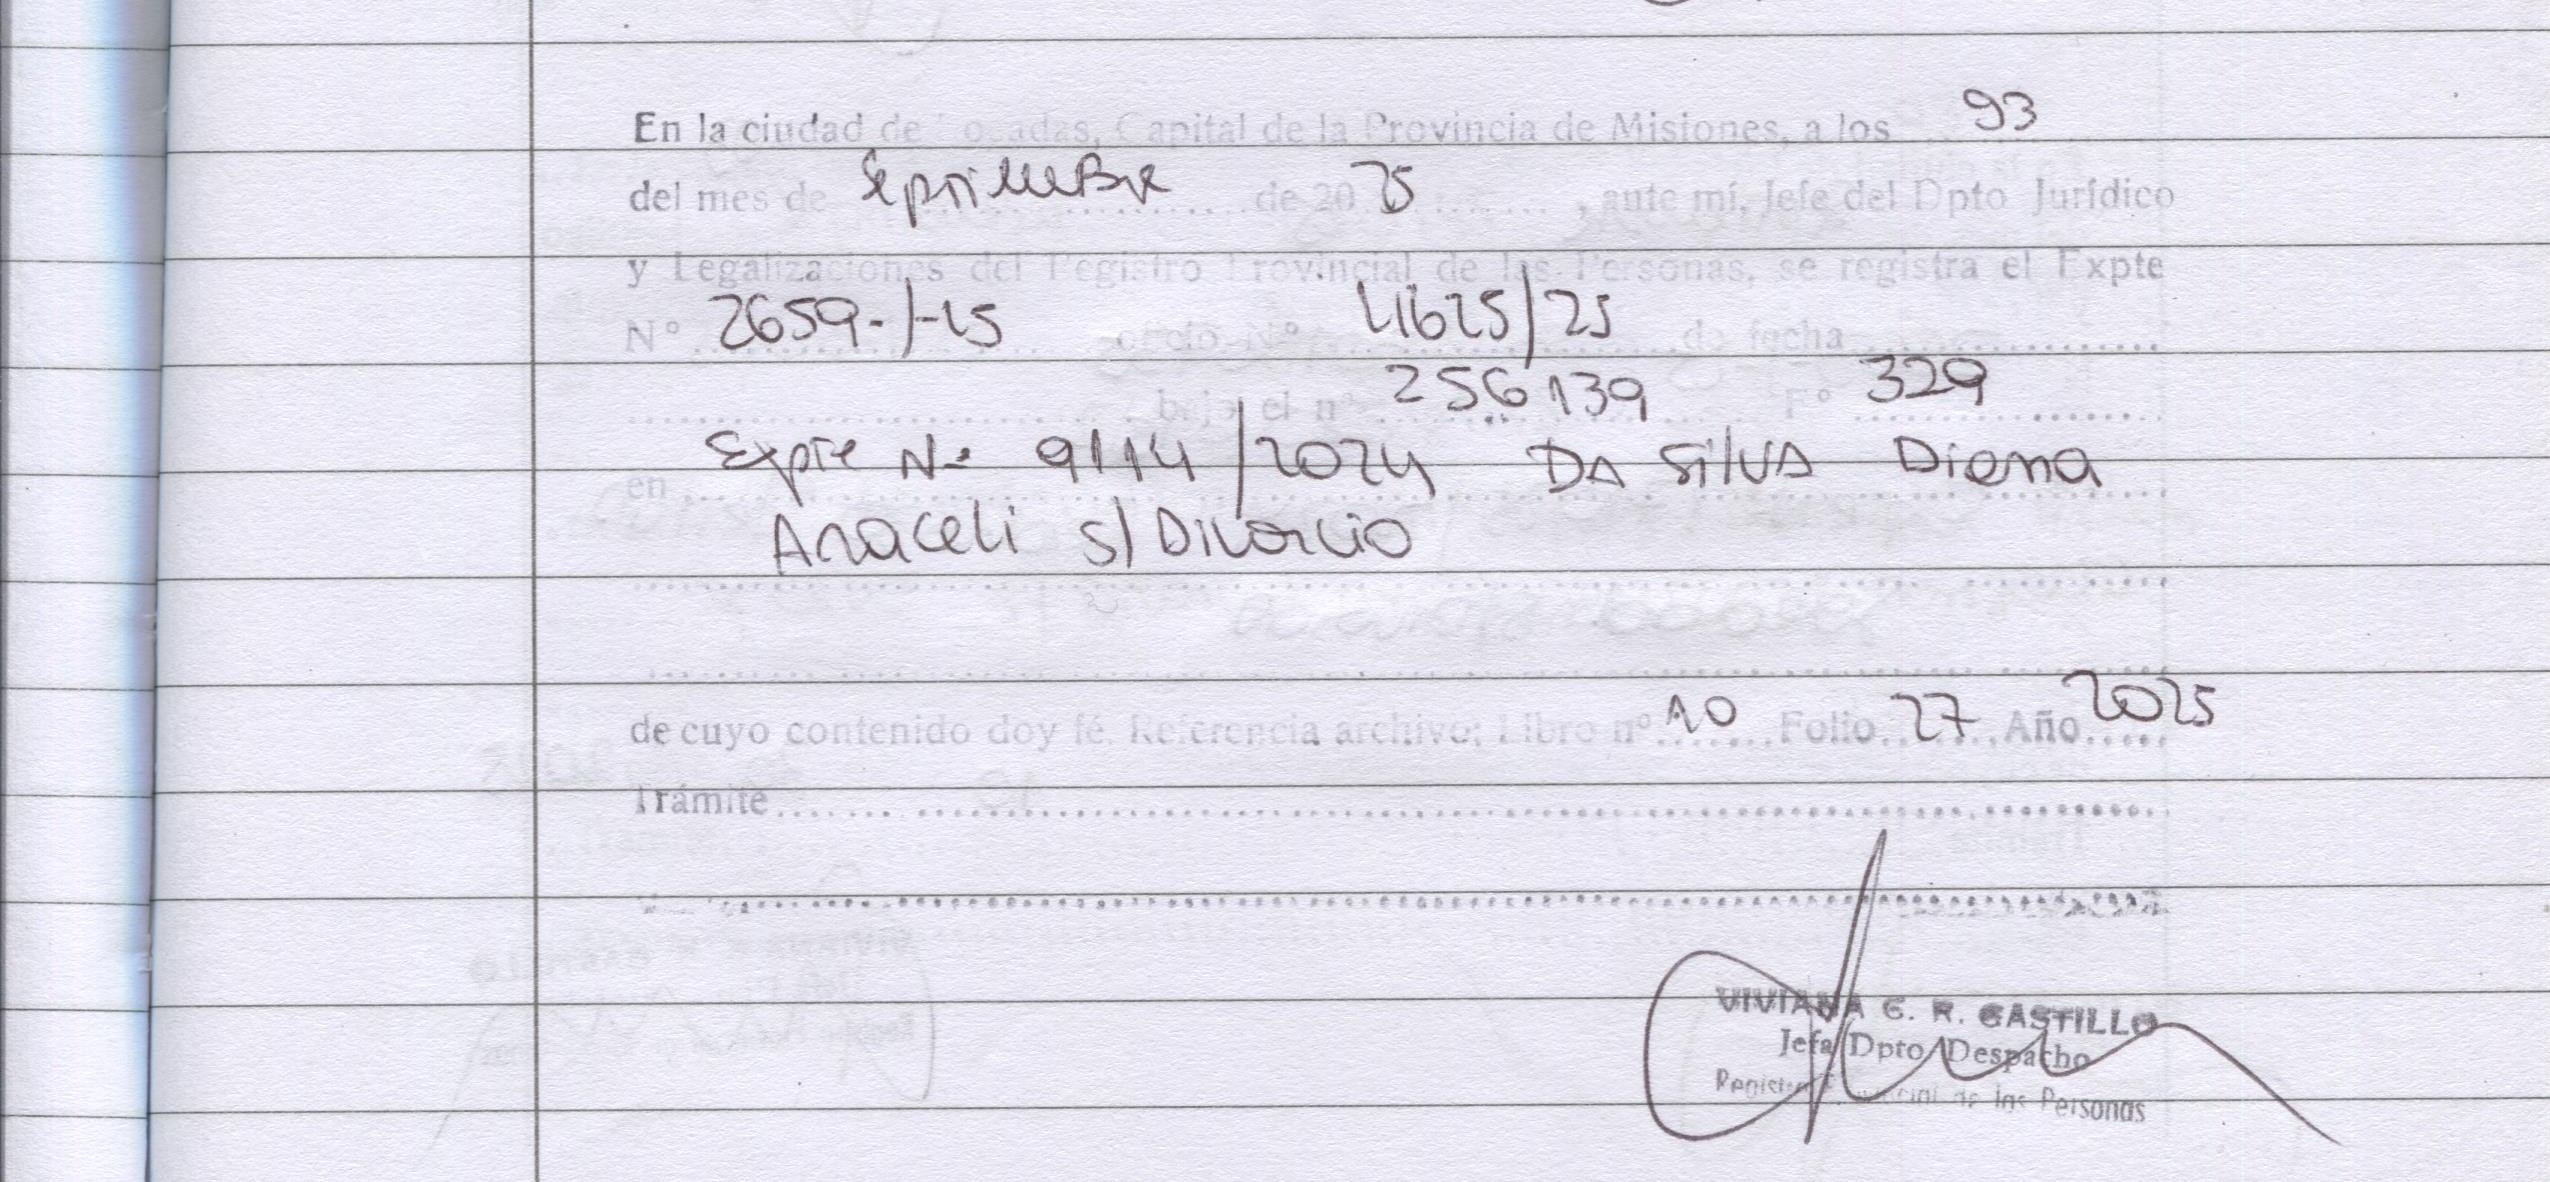 En la ciudad de Posadas, Capital de la Provincia de Misiones, a los 93
del mes de Septiembre de 20 25, ante mí, Jefe del Dpto Jurídico
y Legalizaciones del Registro Provincial de las Personas, se registra el Expte
N° 2659-/-25 oficio N° 41625/25 de fecha
bajo el n° 256139 F° 329
en Expte N° 9114/2024 DA SilVA Diana
Araceli s/ Divorcio
de cuyo contenido doy fé. Referencia archivo; Libro n° 10 Folio 27 Año 2025
Trámite
VIVIANA G. R. CASTILLO
Jefa Dpto Despacho
Registro Provincial de las Personas